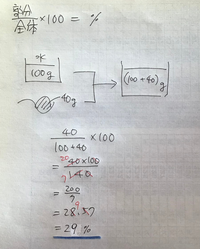 部分/全体 × 100 = %
水
100g
40g
(100+40)g
40/100+40 × 100
= 40×100/140
20
7
= 200/7
= 28.57
9
= 29 %